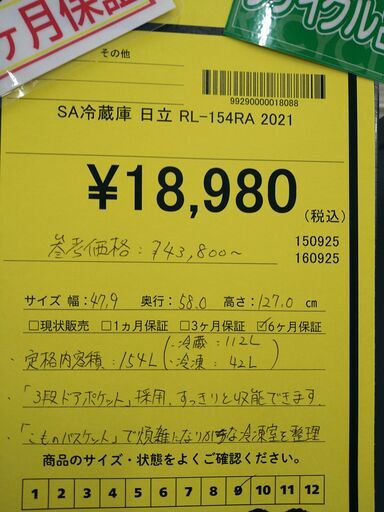 ヶ月保証
リサイクル
その他
99290000018088
SA冷蔵庫 日立 RL-154RA 2021
¥18,980
(税込)
参考価格:¥43,800～
150925
160925
サイズ 幅:47.9 奥行:58.0 高さ:127.0 cm
□現状販売 □1カ月保証 □3ヶ月保証 ☑6ヶ月保証
・定格内容積:154L(・冷蔵:112L
・冷凍:42L)
・「3段ドアポケット」採用、すっきりと収能できます
・「こものバスケット」で煩雑になりがちな冷凍室を整理
商品のサイズ・状態をよくご確認ください。
1 2 3 4 5 6 7 8 9 10 11 12